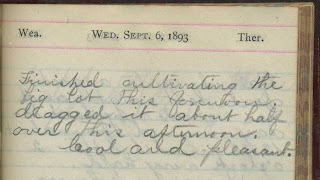 Wea. WED. SEPT. 6, 1893 Ther.
Finished cultivating the
big lot this forenoon.
dragged it about half
over this afternoon.
Cool and pleasant.